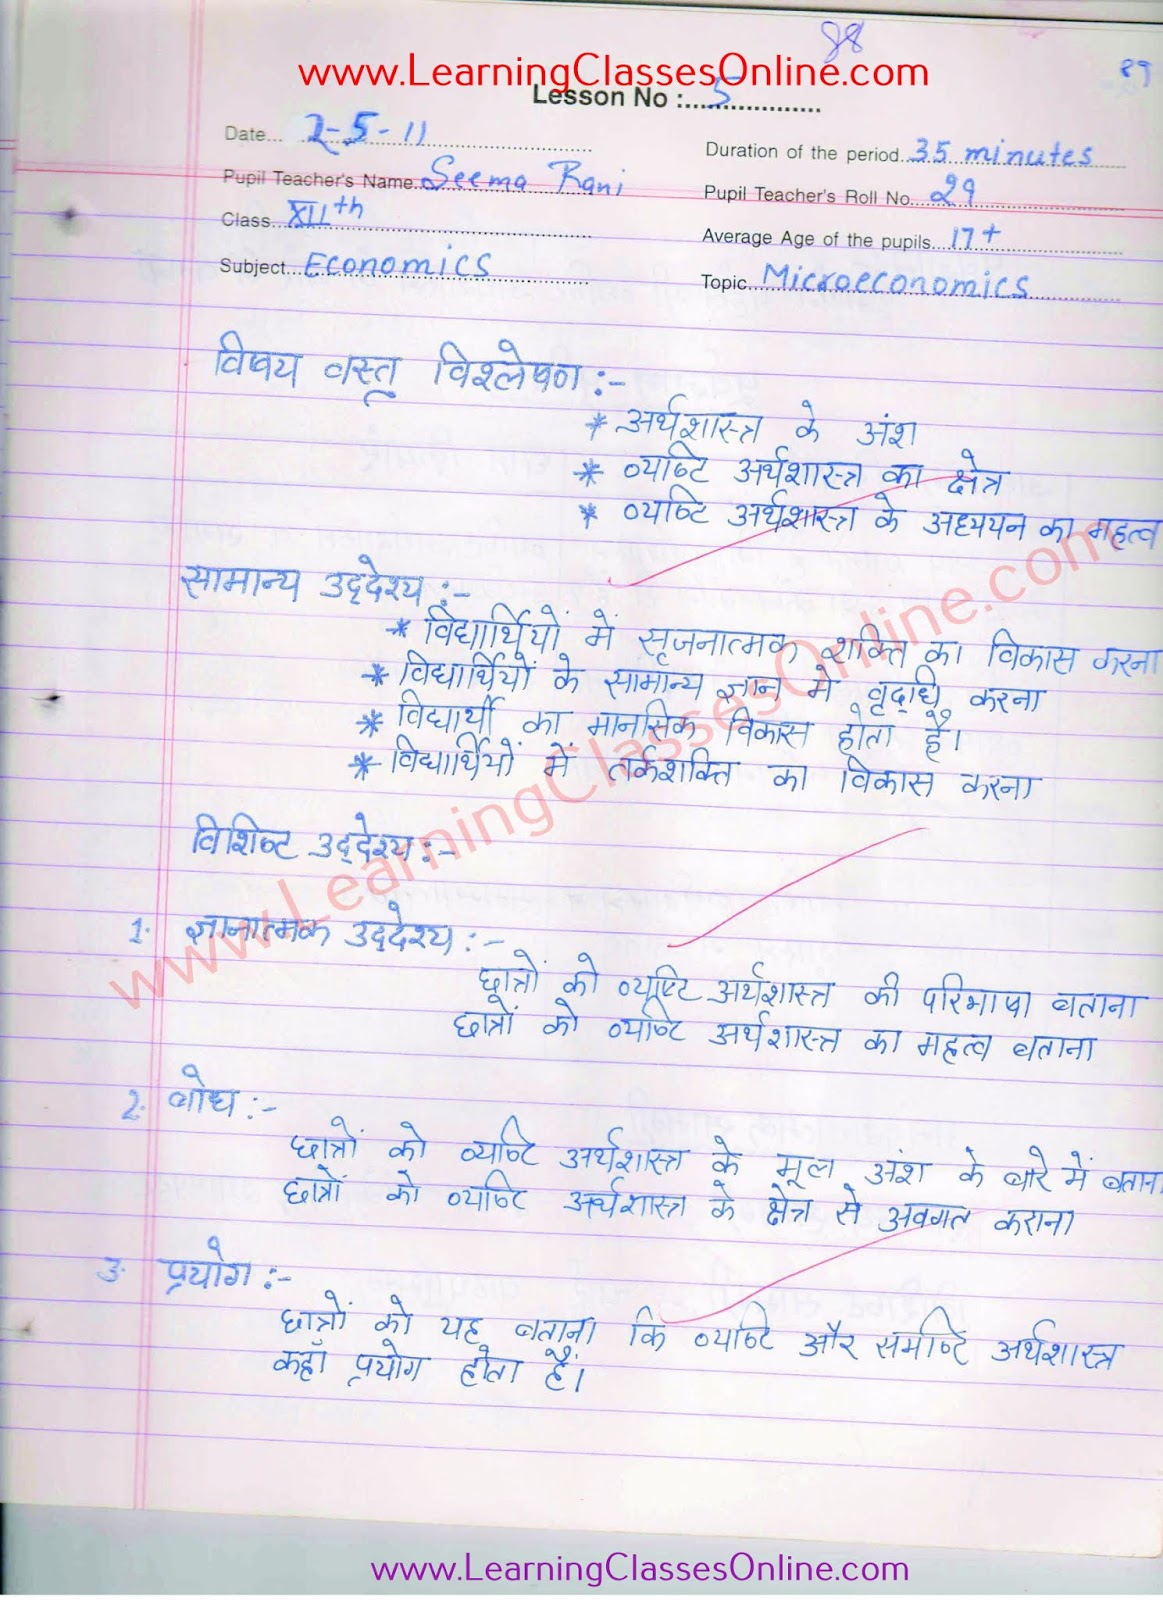 88
89
www.LearningClassesOnline.com
Lesson No :....5....
Date... 2-5-11
Duration of the period..35 minutes
Pupil Teacher's Name. Seema Rani
Pupil Teacher's Roll No. 29
Class.. XIIth
Average Age of the pupils.. 17+
Subject.. Economics
Topic.. Microeconomics
विषय वस्तु विश्लेषण :-
* अर्थशास्त्र के अंश
* व्यष्टि अर्थशास्त्र का क्षेत्र
* व्यष्टि अर्थशास्त्र के अध्ययन का महत्व
सामान्य उद्देश्य :-
* विद्यार्थियों में सृजनात्मक शक्ति का विकास करना
* विद्यार्थियों के सामान्य ज्ञान में वृद्धि करना
* विद्यार्थी का मानसिक विकास होता है।
* विद्यार्थियों में तर्कशक्ति का विकास करना
www.LearningClassesOnline.com
विशिष्ट उद्देश्य :-
1. ज्ञानात्मक उद्देश्य :-
छात्रों को व्यष्टि अर्थशास्त्र की परिभाषा बताना
छात्रों को व्यष्टि अर्थशास्त्र का महत्व बताना
2. बोध :-
छात्रों को व्यष्टि अर्थशास्त्र के मूल अंश के बारे में बताना
छात्रों को व्यष्टि अर्थशास्त्र के क्षेत्र से अवगत कराना
3. प्रयोग :-
छात्रों को यह बताना कि व्यष्टि और समष्टि अर्थशास्त्र
कहाँ प्रयोग होता हैं।
www.LearningClassesOnline.com